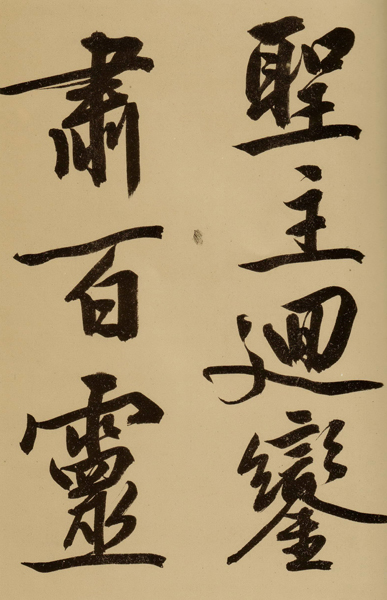 聖主廻鑾
肅百靈